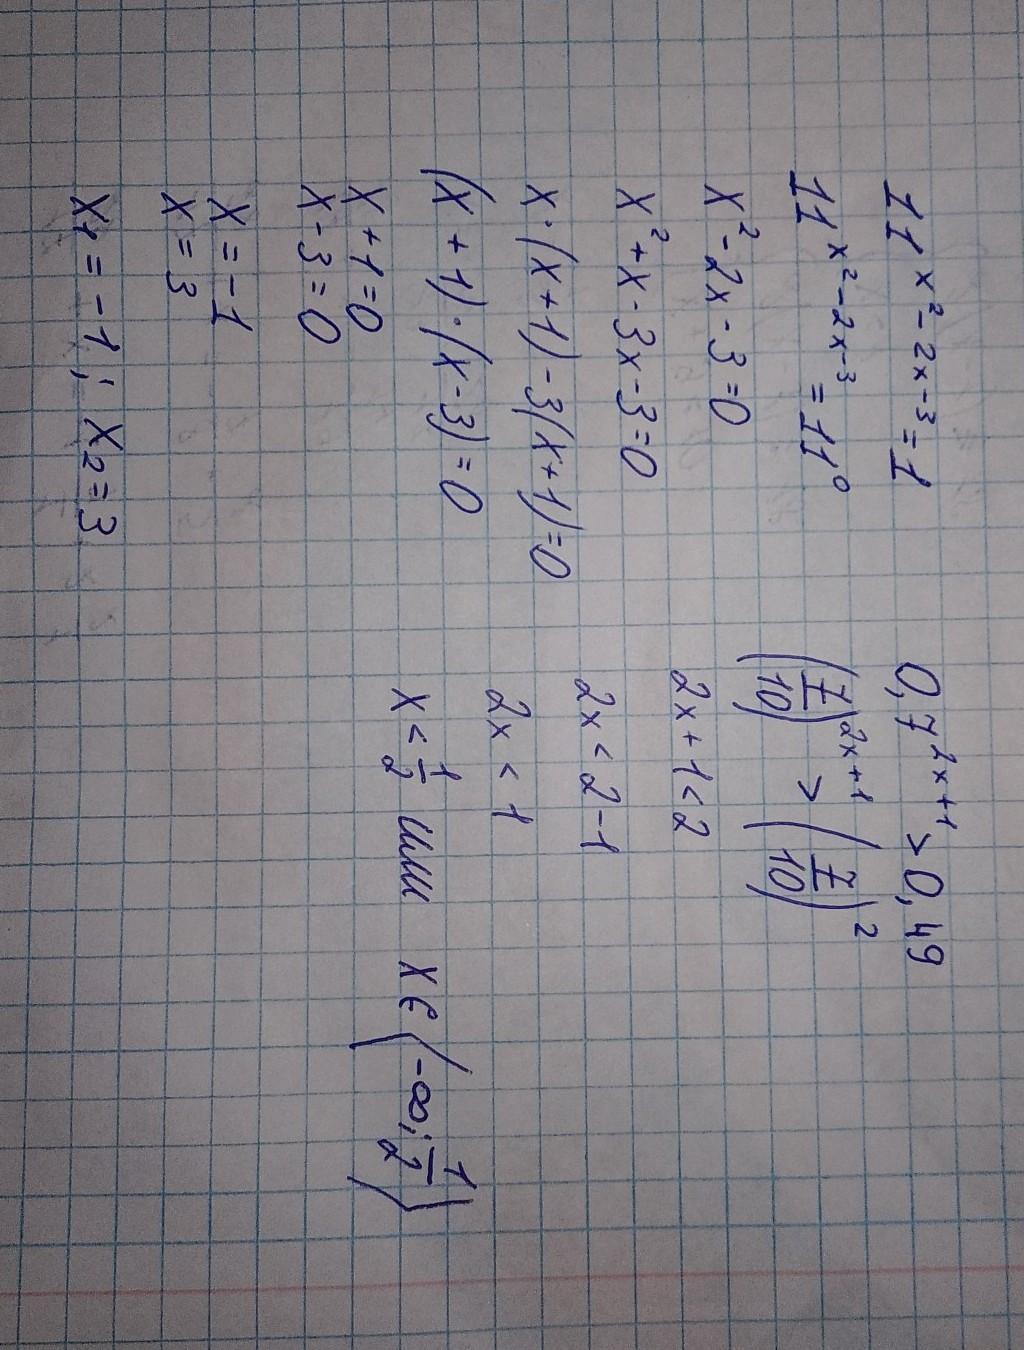 11^(x²-2x-3) = 1
11^(x²-2x-3) = 11⁰
x² - 2x - 3 = 0
x² + x - 3x - 3 = 0
x·(x+1) - 3(x+1) = 0
(x+1)·(x-3) = 0
x+1=0
x-3=0
x=-1
x=3
x₁ = -1; x₂ = 3
0,7^(2x+1) > 0,49
(7/10)^(2x+1) > (7/10)²
2x+1<2
2x<2-1
2x<1
x<1/2 или x∈(-∞; 1/2)